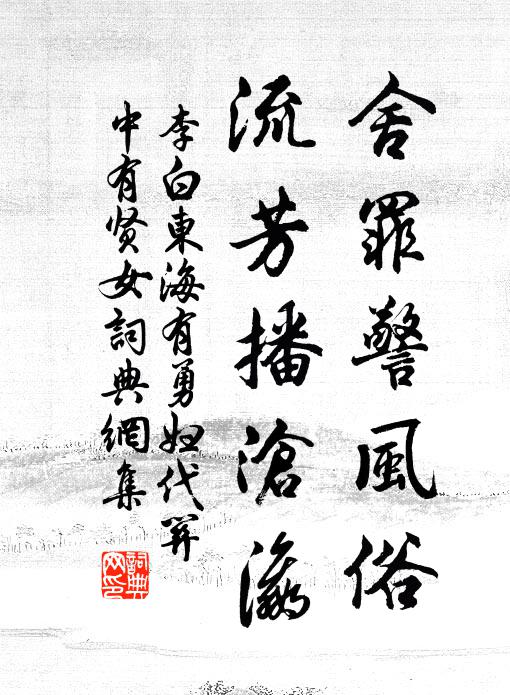 舍罪警風俗
流芳播滄瀛
李白東海有勇妇代關
中有贤女詞典網集
詞典網印